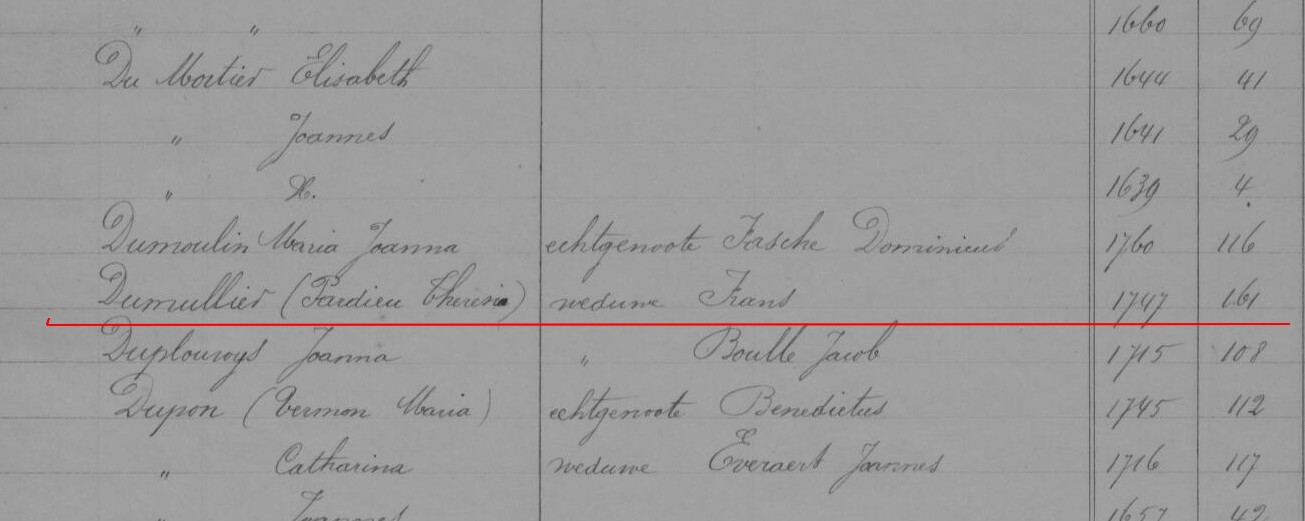 " " 1660 69
Du Mortier Elisabeth 1644 41
" Joannes 1641 29
" X. 1639 4.
Dumoulin Maria Joanna echtgenoote Fasche Dominicus 1760 116
Dumullier (Pardieu Theresia) weduwe Frans 1747 161
Duplouroys Joanna " Boulle Jacob 1715 108
Dupon (Vermon Maria) echtgenoote Benedictus 1745 112
" Catharina weduwe Everaert Joannes 1716 117
" Joannes 1657 42